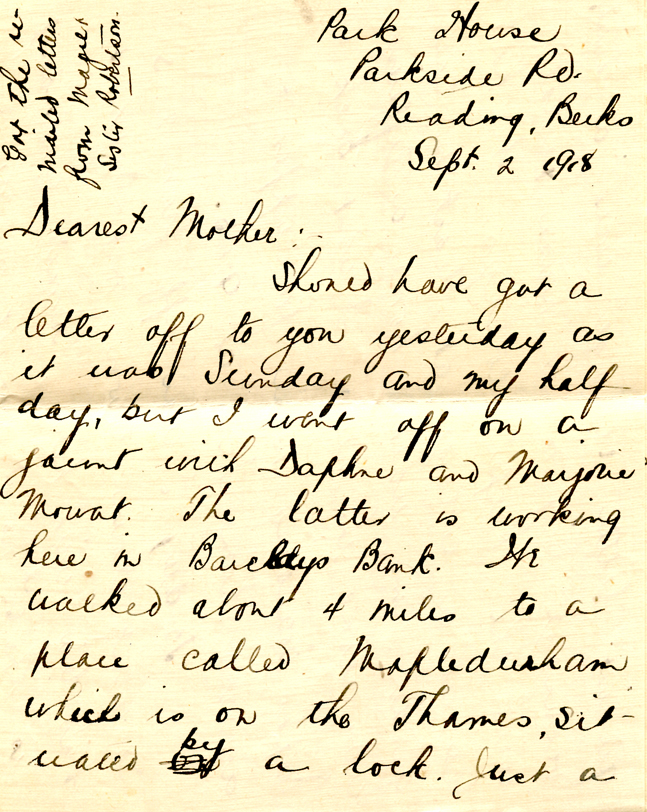 Park House
Parkside Rd.
Reading, Berks
Sept. 2 1918
Got the re-
mailed letters
from Mayer
Leslie Robertson.
Dearest Mother :-
Should have got a
letter off to you yesterday as
it was Sunday and my half
day, but I went off on a
jaunt with Daphne and Marjorie
Mowat. The latter is working
here in Barclays Bank. We
walked about 4 miles to a
place called Mapledurham
which is on the Thames, sit-
uated by a lock. Just a